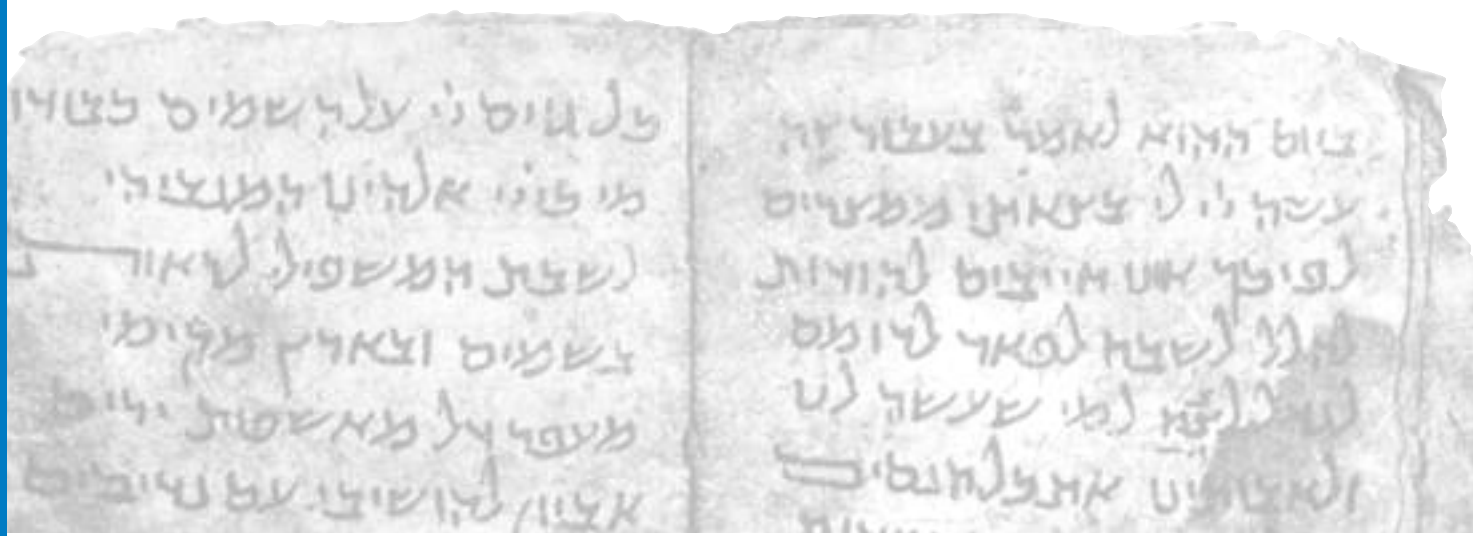 ביום ההוא לאמר בעבור זה
עשה ייי לי בצאתי ממצרים
לפיכך אנו חייבים להודות
להלל לשבח לפאר לרומם
למי שעשה לנו
ולאבותינו את כל הנסים
כל גוים ייי על השמים כבודו
מי כייי אלהינו המגביהי
לשבת המשפילי לראות
בשמים ובארץ מקימי
מעפר דל מאשפות ירים
אביון להושיבי עם נדיבים